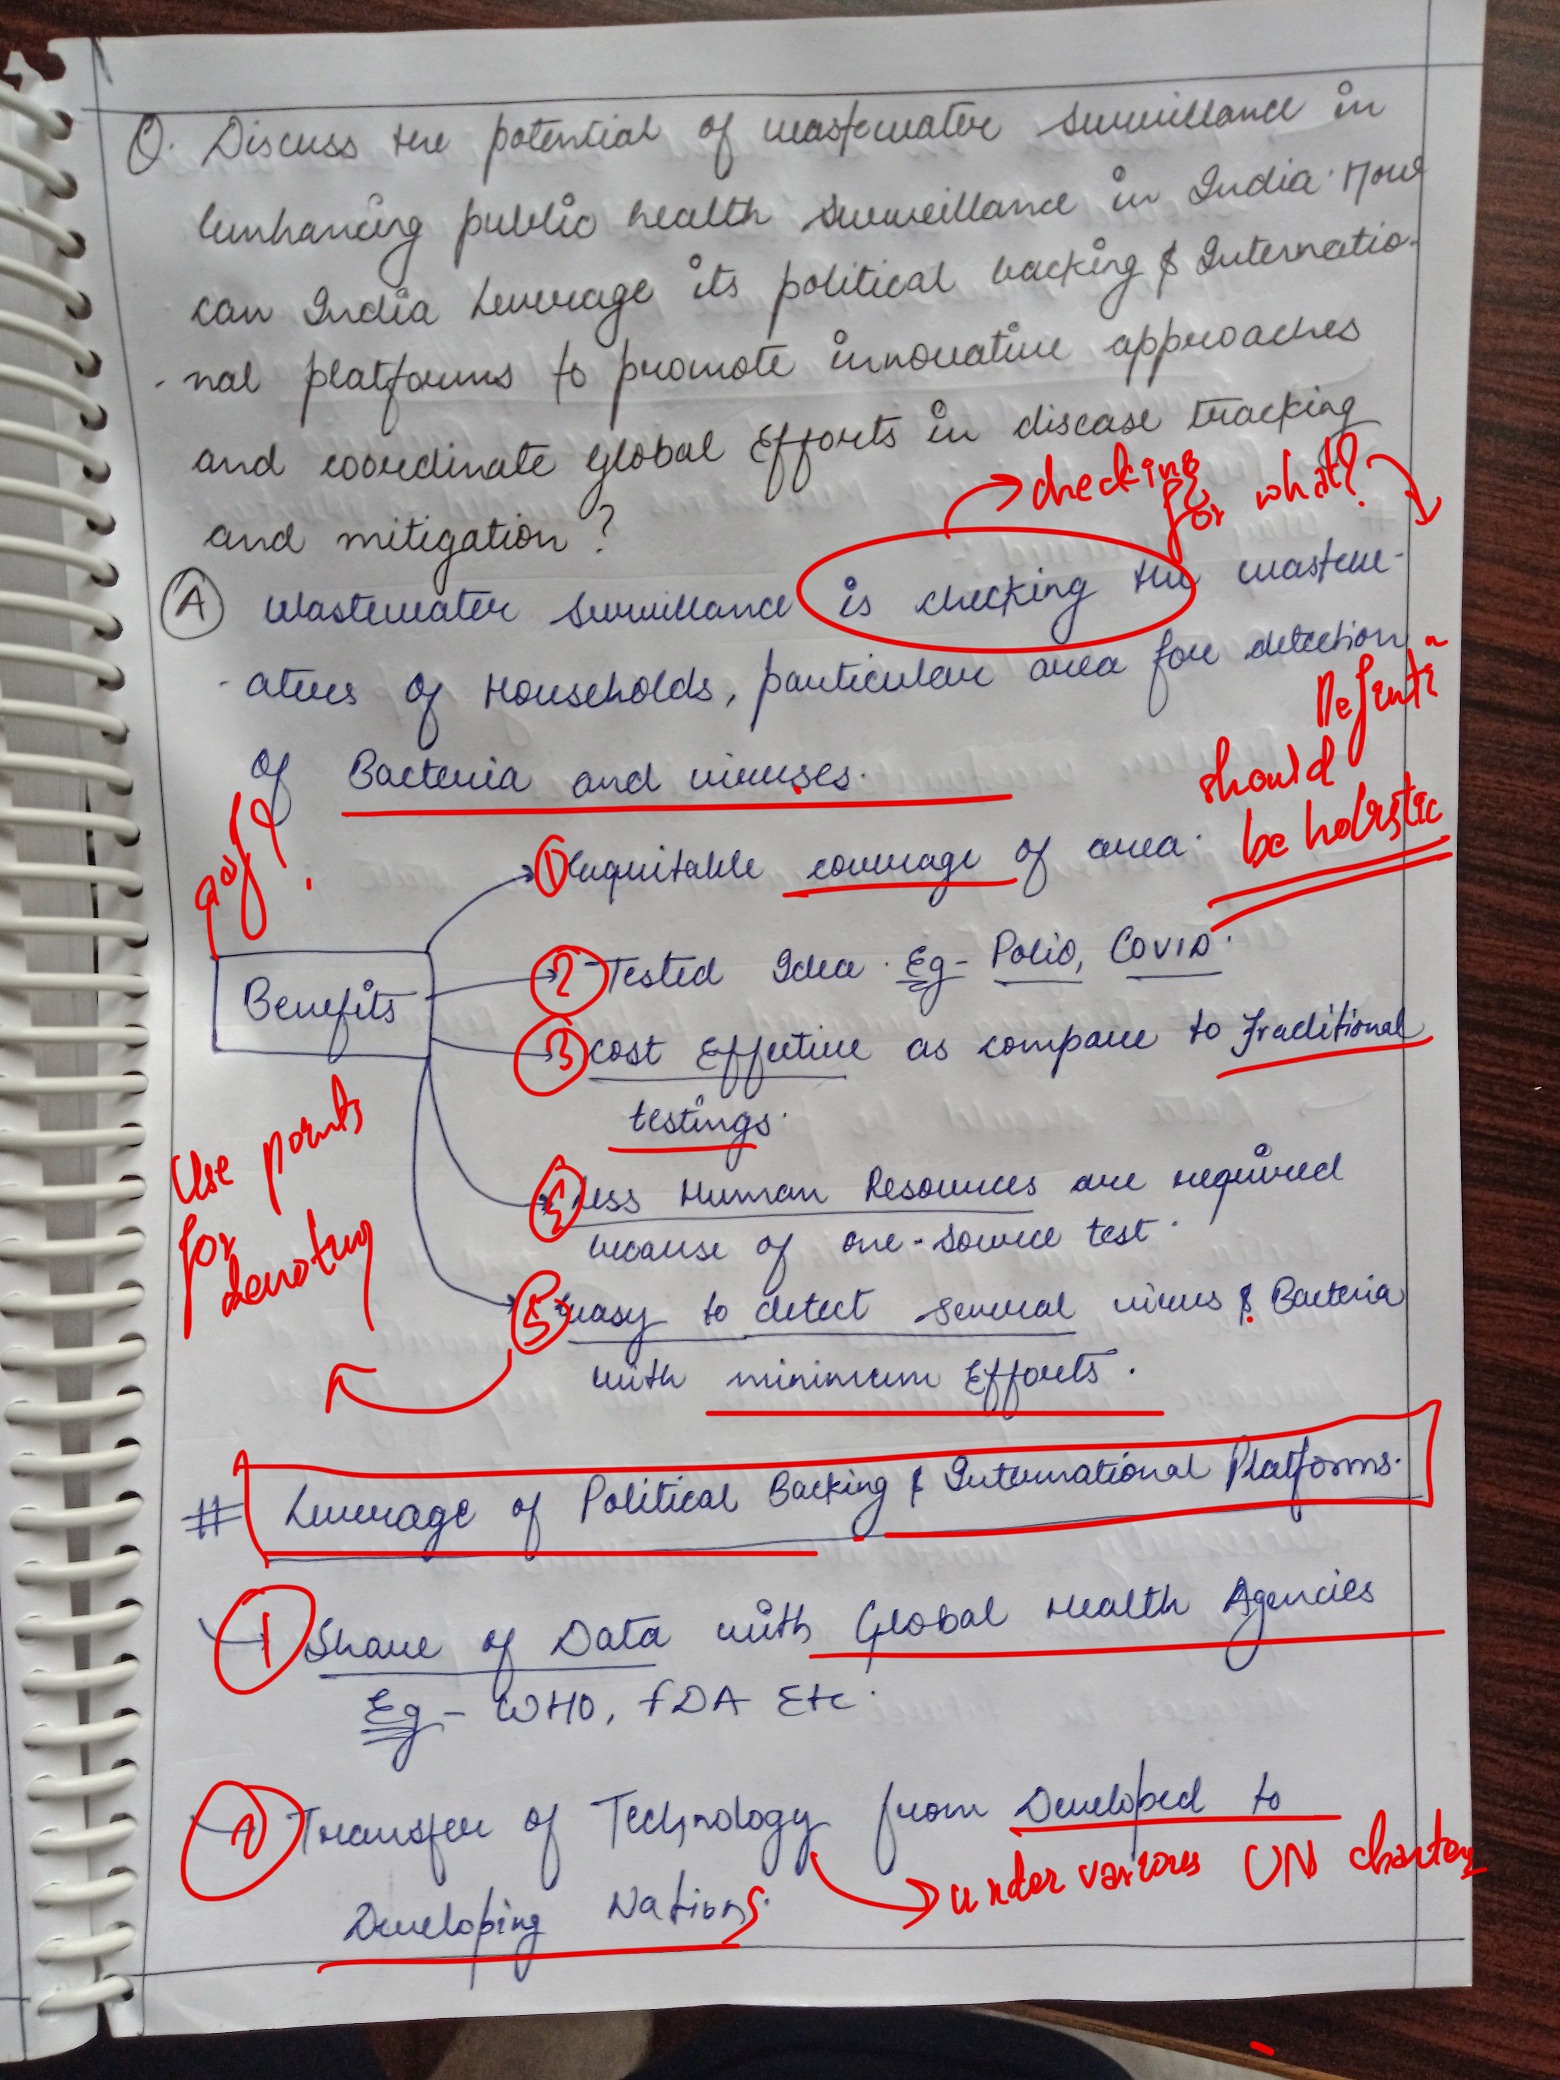 Q. Discuss the potential of wastewater surveillance in
enhancing public health surveillance in India. How
can India leverage its political backing & Internatio-
-nal platforms to promote innovative approaches
and coordinate global Efforts in disease tracking
and mitigation?
→ checking for what?
(A) Wastewater surveillance is checking the wastew-
-aters of Households, particular area for detection
of Bacteria and viruses.
should
be holistic
Benefits
① Equitable coverage of area.
② Tested Idea. Eg- Polio, COVID.
③ Cost Effective as compare to Traditional
testings.
Use points
for
denoting
④ Less Human Resources are required
because of one-source test.
⑤ Easy to detect several virus & Bacteria
with minimum Efforts.
# Leverage of Political Backing & International Platforms.
① Share of Data with Global Health Agencies
Eg- WHO, FDA Etc.
② Transfer of Technology from Developed to
→ under various UN charters
Developing Nations.